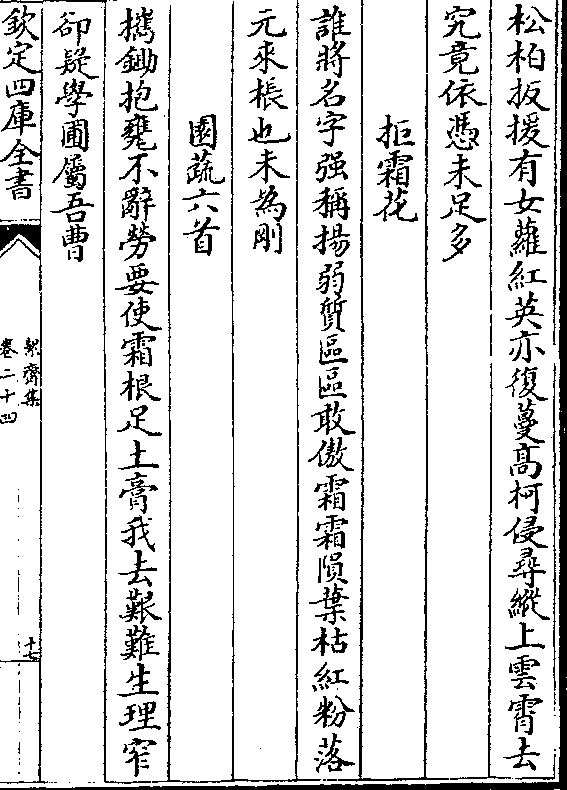 松柏扳援有女蘿紅英亦復蔓髙柯侵尋縱上雲霄去
究竟依憑未足多
拒霜花
誰將名字强稱揚弱質區區敢傲霜霜隕葉枯紅粉落
元來棖也未為剛
園蔬六首
攜鋤抱甕不辭勞要使霜根足土膏我去艱難生理窄
卻疑學圃屬吾曹
欽定四庫全書
絜齋集
卷二十四
十七